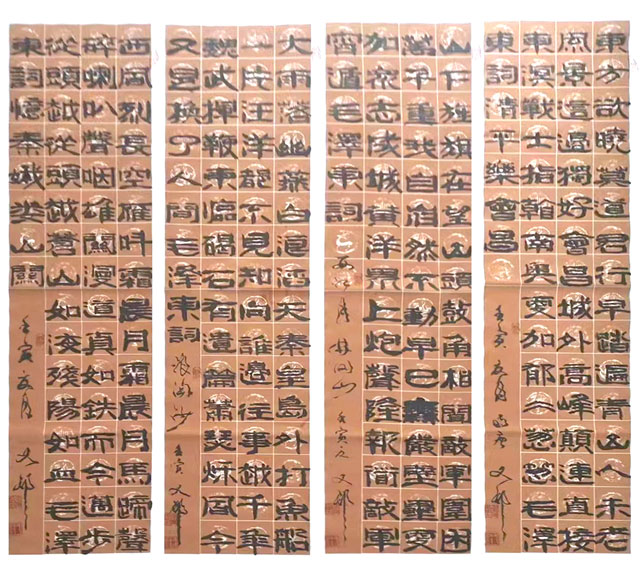 東方欲曉莫道君行早踏遍青山人未老
風景這邊獨好會昌城外高峰顛連直接
東溟戰士指看南粵更加郁々葱葱毛澤
東詞清平樂會昌
壬寅五月 文邨
山下旌旗在望山頭鼓角相聞敵軍圍困
萬千重我自巋然不動早已森嚴壁壘更
加衆志成城黃洋界上炮聲隆報道敵軍
宵遁毛澤東詞
西江月井岡山 壬寅 文邨
大雨落幽燕白浪滔天秦皇島外打魚船
一片汪洋都不見知向誰邊往事越千年
魏武揮鞭東臨碣石有遺篇蕭瑟秋風今
又是換了人間毛澤東詞
浪淘沙 壬寅 文邨
西風烈長空雁叫霜晨月霜晨月馬蹄聲
碎喇叭聲咽雄關漫道真如鉄而今邁步
從頭越從頭越蒼山如海殘陽如血毛澤
東詞憶秦娥婁山關
壬寅五月 文邨